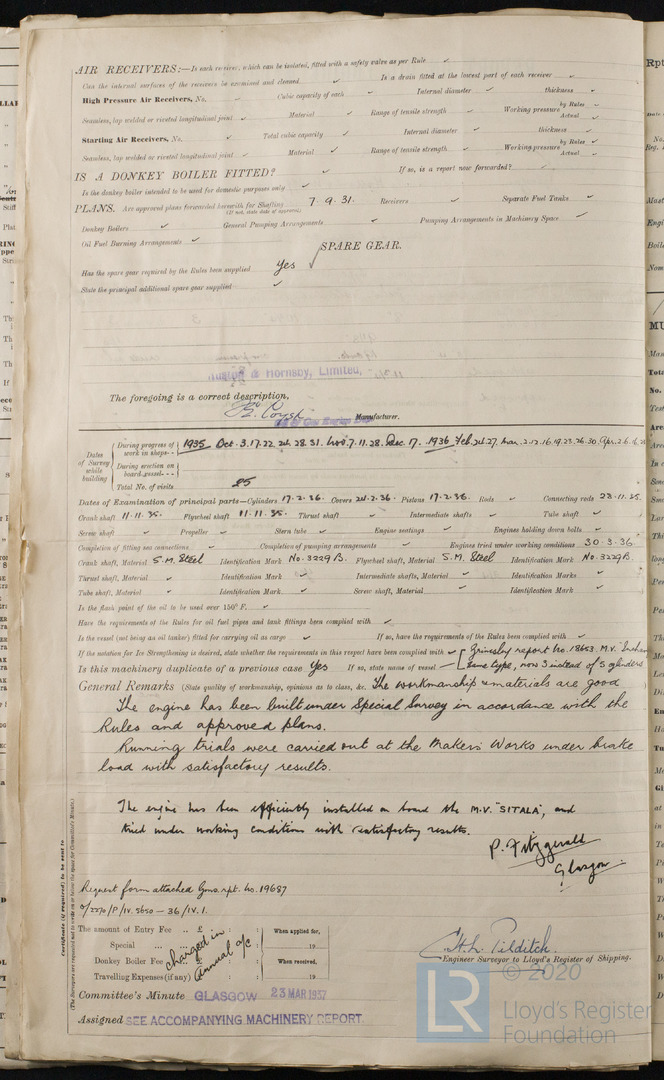 AIR RECEIVERS:—Is each receiver, which can be isolated, fitted with a safety valve as per Rule ✓
Can the internal surfaces of the receivers be examined and cleaned ✓ Is a drain fitted at the lowest part of each receiver ✓
High Pressure Air Receivers, No. ✓ Cubic capacity of each ✓ Internal diameter ✓ thickness ✓
Seamless, lap welded or riveted longitudinal joint ✓ Material ✓ Range of tensile strength ✓ Working pressure by Rules ✓ Actual ✓
Starting Air Receivers, No. ✓ Total cubic capacity ✓ Internal diameter ✓ thickness ✓
Seamless, lap welded or riveted longitudinal joint ✓ Material ✓ Range of tensile strength ✓ Working pressure by Rules ✓ Actual ✓
IS A DONKEY BOILER FITTED? ✓ If so, is a report now forwarded? ✓
Is the donkey boiler intended to be used for domestic purposes only ✓
PLANS. Are approved plans forwarded herewith for Shafting 7.9.31. Receivers ✓ Separate Fuel Tanks ✓
(If not, state date of approval)
Donkey Boilers ✓ General Pumping Arrangements ✓ Pumping Arrangements in Machinery Space ✓
Oil Fuel Burning Arrangements ✓
SPARE GEAR.
Has the spare gear required by the Rules been supplied yes
State the principal additional spare gear supplied ✓
Ruston & Hornsby, Limited,
The foregoing is a correct description,
Manufacturer.
Dates of Survey while building
During progress of work in shops-- 1935 Oct. 3.17.22.24.28.31. Nov. 7.11.28. Dec. 17. 1936 Feb. 24.27. Mar. 2.12.16.19.23.26.30. Apr. 2.6.16.
During erection on board vessel---
Total No. of visits 25
Dates of Examination of principal parts—Cylinders 17.2.36. Covers 24.2.36. Pistons 17.2.36. Rods ✓ Connecting rods 28.11.35.
Crank shaft 11.11.35. Flywheel shaft 11.11.35. Thrust shaft ✓ Intermediate shafts ✓ Tube shaft ✓
Screw shaft ✓ Propeller ✓ Stern tube ✓ Engine seatings ✓ Engines holding down bolts ✓
Completion of fitting sea connections ✓ Completion of pumping arrangements ✓ Engines tried under working conditions 30.3.36
Crank shaft, Material S.M. Steel Identification Mark No. 3229 B. Flywheel shaft, Material S.M. Steel Identification Mark No. 3229 B.
Thrust shaft, Material ✓ Identification Mark ✓ Intermediate shafts, Material ✓ Identification Marks ✓
Tube shaft, Material ✓ Identification Mark ✓ Screw shaft, Material ✓ Identification Mark ✓
Is the flash point of the oil to be used over 150° F. ✓
Have the requirements of the Rules for oil fuel pipes and tank fittings been complied with ✓
Is the vessel (not being an oil tanker) fitted for carrying oil as cargo ✓ If so, have the requirements of the Rules been complied with ✓
If the notation for Ice Strengthening is desired, state whether the requirements in this respect have been complied with ✓ Grimsby report No. 18653. M.V.
Is this machinery duplicate of a previous case Yes If so, state name of vessel — Same type, now 3 instead of 5 cylinders
General Remarks (State quality of workmanship, opinions as to class, &c. The workmanship & materials are good
The engine has been built under Special Survey in accordance with the
Rules and approved plans.
Running trials were carried out at the Makers Works under brake
load with satisfactory results.
The engine has been efficiently installed on board the M.V. "SITALA", and
tried under working conditions with satisfactory results.
P. Fitzgerald
Glasgow.
Certificate (if required) to be sent to
(The Surveyors are requested not to write on or below the space for Committee's Minute.)
Request form attached Gms. rpt. No. 19687
The amount of Entry Fee .. £ : When applied for,
Special .. .. : 19
Donkey Boiler Fee .. £ : When received,
Travelling Expenses (if any) £ : 19
charged in Annual a/c
H.L. Pilditch
Engineer Surveyor to Lloyd's Register of Shipping.
Committee's Minute GLASGOW 23 MAR 1937
Assigned SEE ACCOMPANYING MACHINERY REPORT.
© 2020
LR
Lloyd's Register
Foundation